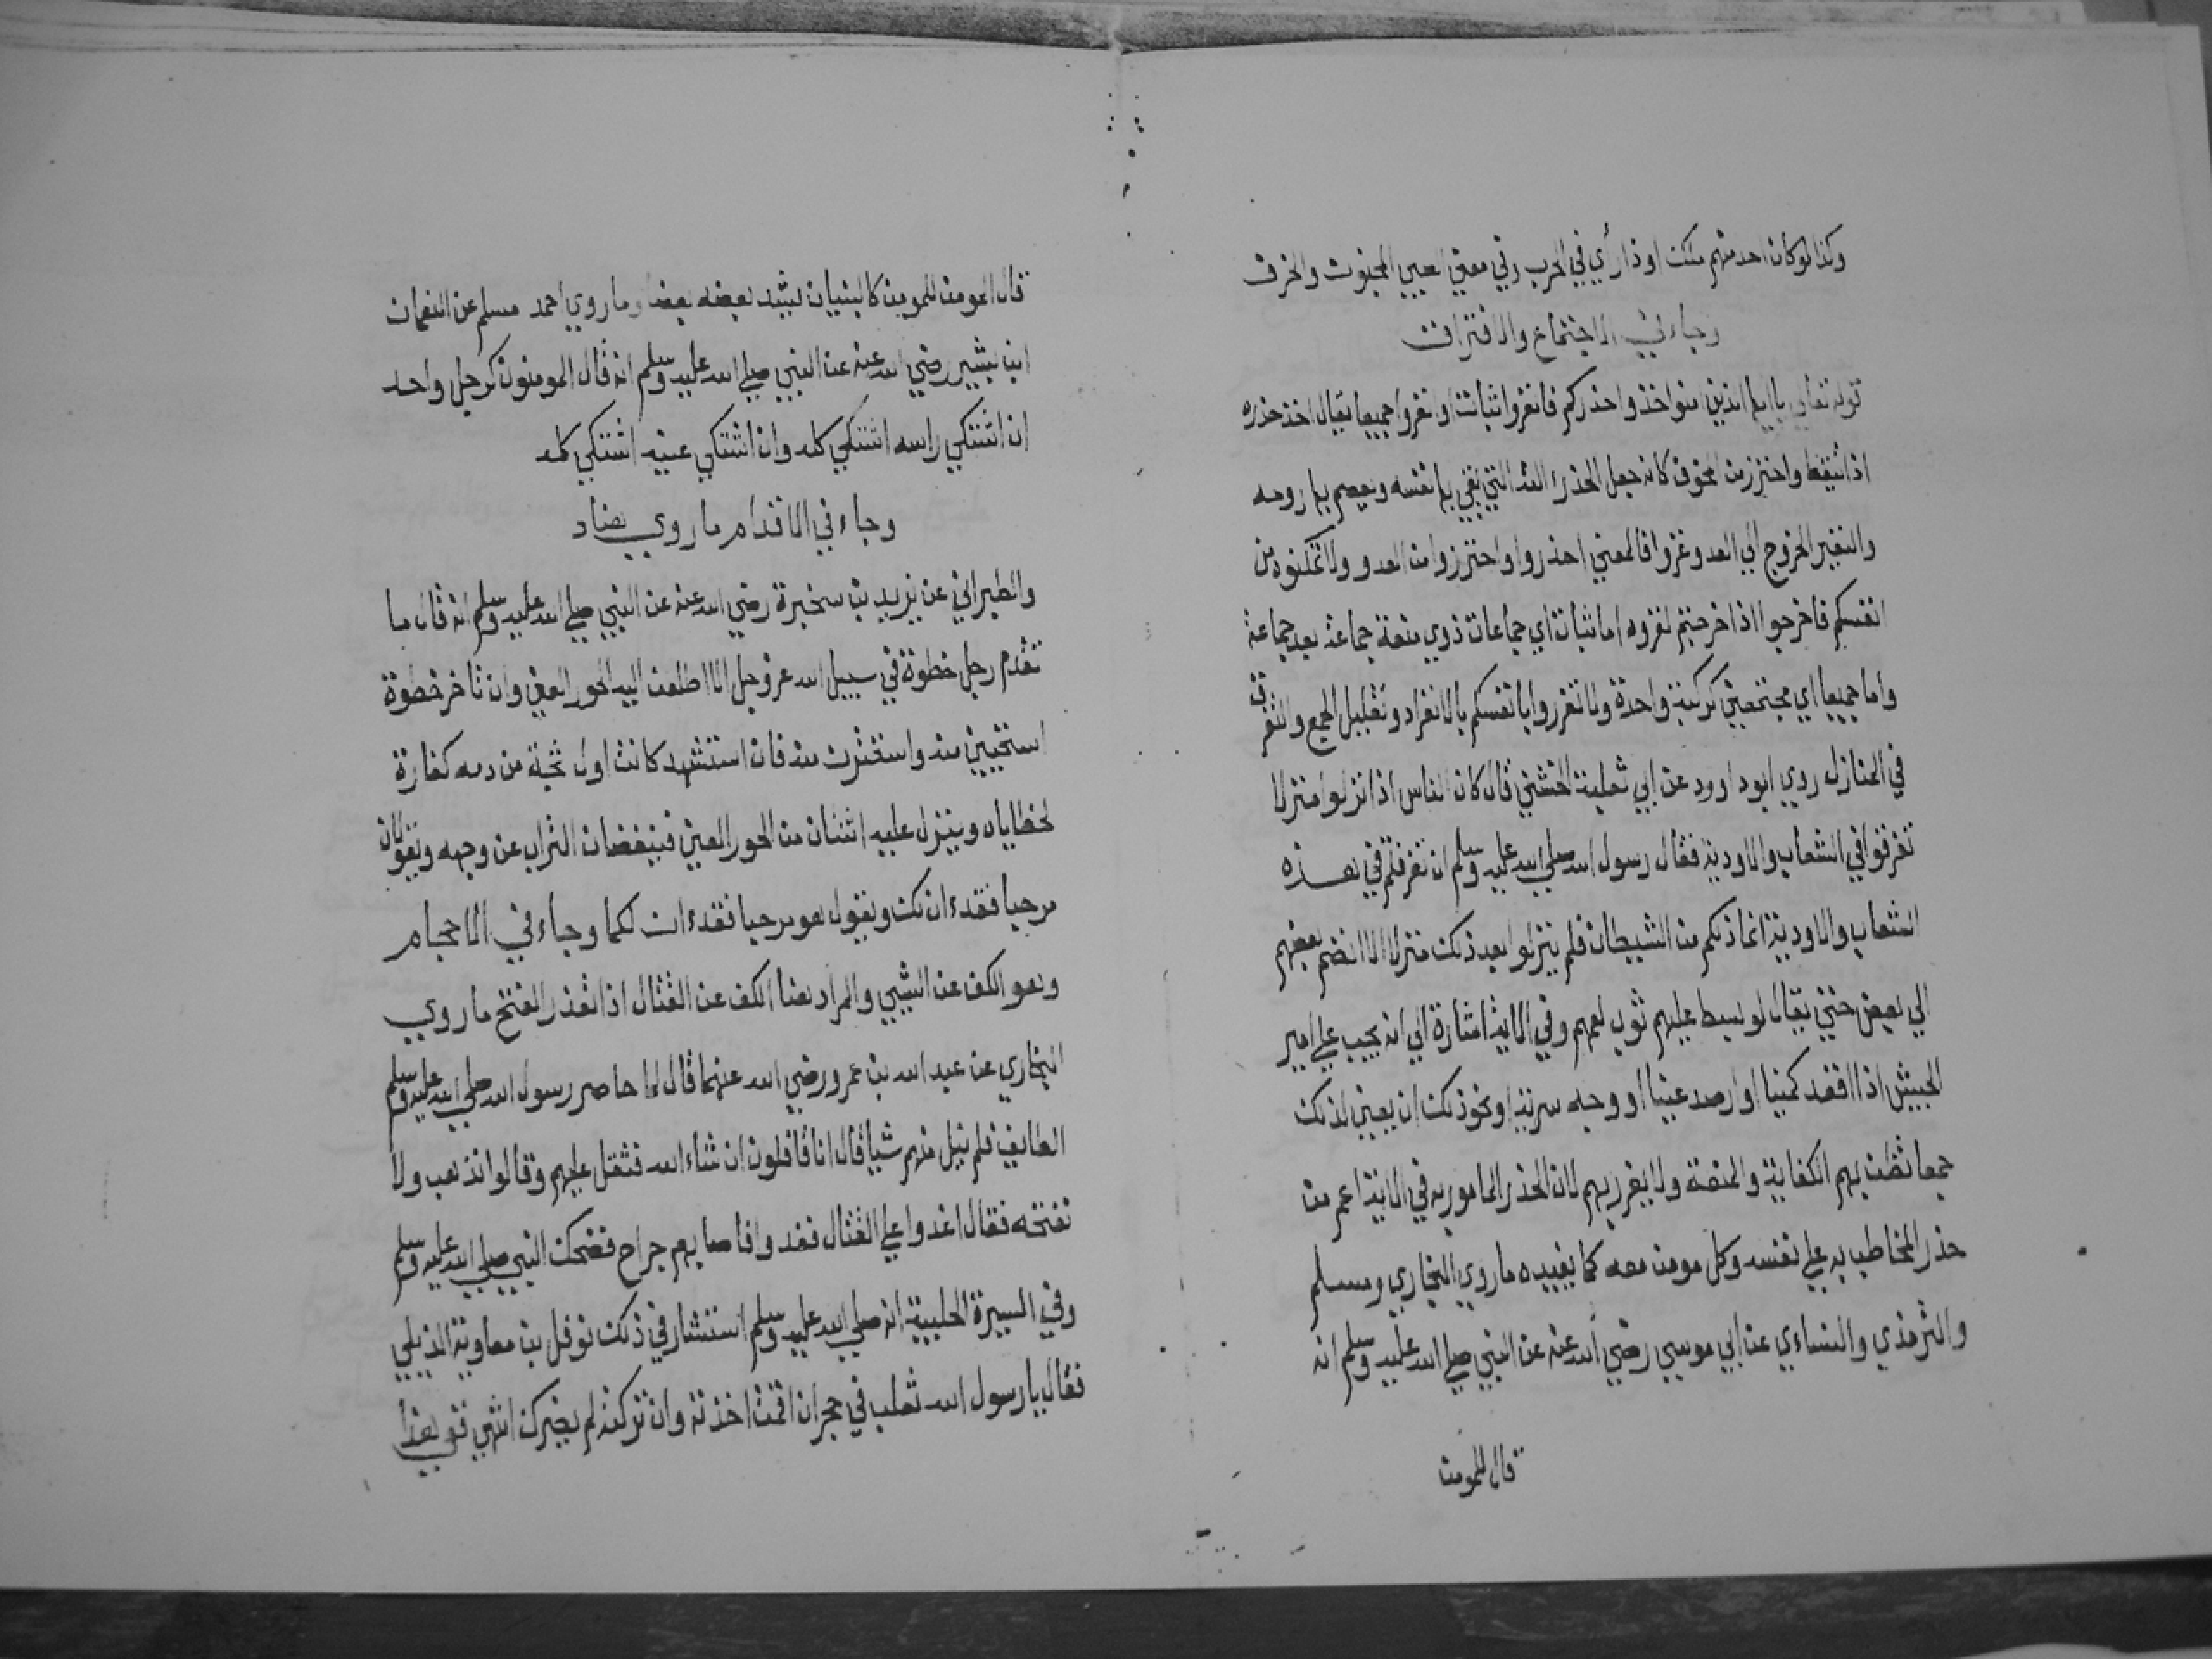 وكذا لو كان احد منهم ملك او ذا رأي في الحرب وفي معني الصبي المجنون والخرف
وجاء في الاجتماع والافتراق
قوله تعالي يا ايها الذين امنوا خذوا حذركم فانفروا ثبات او انفروا جميعا يقال اخذ حذره
اذا تيقظ واحترز من المخوف كانه جعل الحذر الته التي يقي بها نفسه ويعصم بها روحه
والنفير الخروج الي العدو وغزوا فالمعني احذروا واحترزوا من العدو ولا تمكنوه من
انفسكم فاخرجوا اذا خرجتم لغزوه اما ثبات اي جماعات ذوي منعة جماعة بعد جماعة
واما جميعا اي مجتمعين كركبة واحدة ولا تغرروا بانفسكم بالانفراد وتقليل الجمع والتفرق
في المنازل روي ابو داوود عن ابي ثعلبة الخشني قال كان الناس اذا نزلوا منزلا
تفرقوا في الشعاب والاودية فقال رسول الله صلي الله عليه وسلم ان تفرقكم في هذه
الشعاب والاودية انما ذلكم من الشيطان فلم ينزلوا بعد ذلك منزلا الا انضم بعضهم
الي بعض حتي يقال لو بسط عليهم ثوب لعمهم وفي الاية اشارة الي انه يجب علي امير
الجيش اذا افقد كمينا او ارصد عينا او وجه سرية او نحو ذلك ان يعين لذلك
جمعا تظن بهم الكفاية والمنعة ولا يغرر بهم لان الحذر المامور به في الاية اعم من
حذر المخاطب به علي نفسه وكل مومن معه كما يفيده ما روي البخاري ومسلم
والترمذي والنساءي عن ابي موسي رضي الله عنه عن النبي صلي الله عليه وسلم انه
قال المومن
قال المومن للمومن كالبنيان يشد بعضه بعضا وما روي احمد مسلم عن النعمان
ابن بشير رضي الله عنه عن النبي صلي الله عليه وسلم انه قال المومنون كرجل واحد
ان اشتكي راسه اشتكي كله وان اشتكي عينه اشتكي كله
وجاء في الاقدام ما روي هناد
والطبراني عن يزيد بن سخبرة رضي الله عنه عن النبي صلي الله عليه وسلم انه قال ما
تقدم رجل خطوة في سبيل الله عز وجل الا اطلعن اليه الحور العين وان تاخر خطوة
استحيين منه واستترت منه فان استشهد كانت اول نحبة من دمه كفارة
لخطاياه وينزل عليه اثنتان من الحور العين فينفضان التراب عن وجهه وتقولان
مرحبا فقد ءان لك ويقول هو مرحبا فقد ءان لكما وجاء في الاحجام
وهو الكف عن الشيي والمراد هنا الكف عن القتال اذا تعذر الفتح ما روي
البخاري عن عبد الله بن عمرو رضي الله عنهما قال لما حاصر رسول الله صلي الله عليه وسلم
الطايف فلم ينل منهم شيا قال انا قافلون ان شاء الله فثقل عليهم وقالوا نذهب ولا
نفتحه فقال اغدوا علي القتال فغدوا فاصابهم جراح فضحك النبي صلي الله عليه وسلم
وفي السيرة الحلبية انه صلي الله عليه وسلم استشار في ذلك نوفل بن معاوية الذيلي
فقال يا رسول الله ثعلب في جحر ان اقمت اخذته وان تركته لم يضرك انتهي ففي هذا